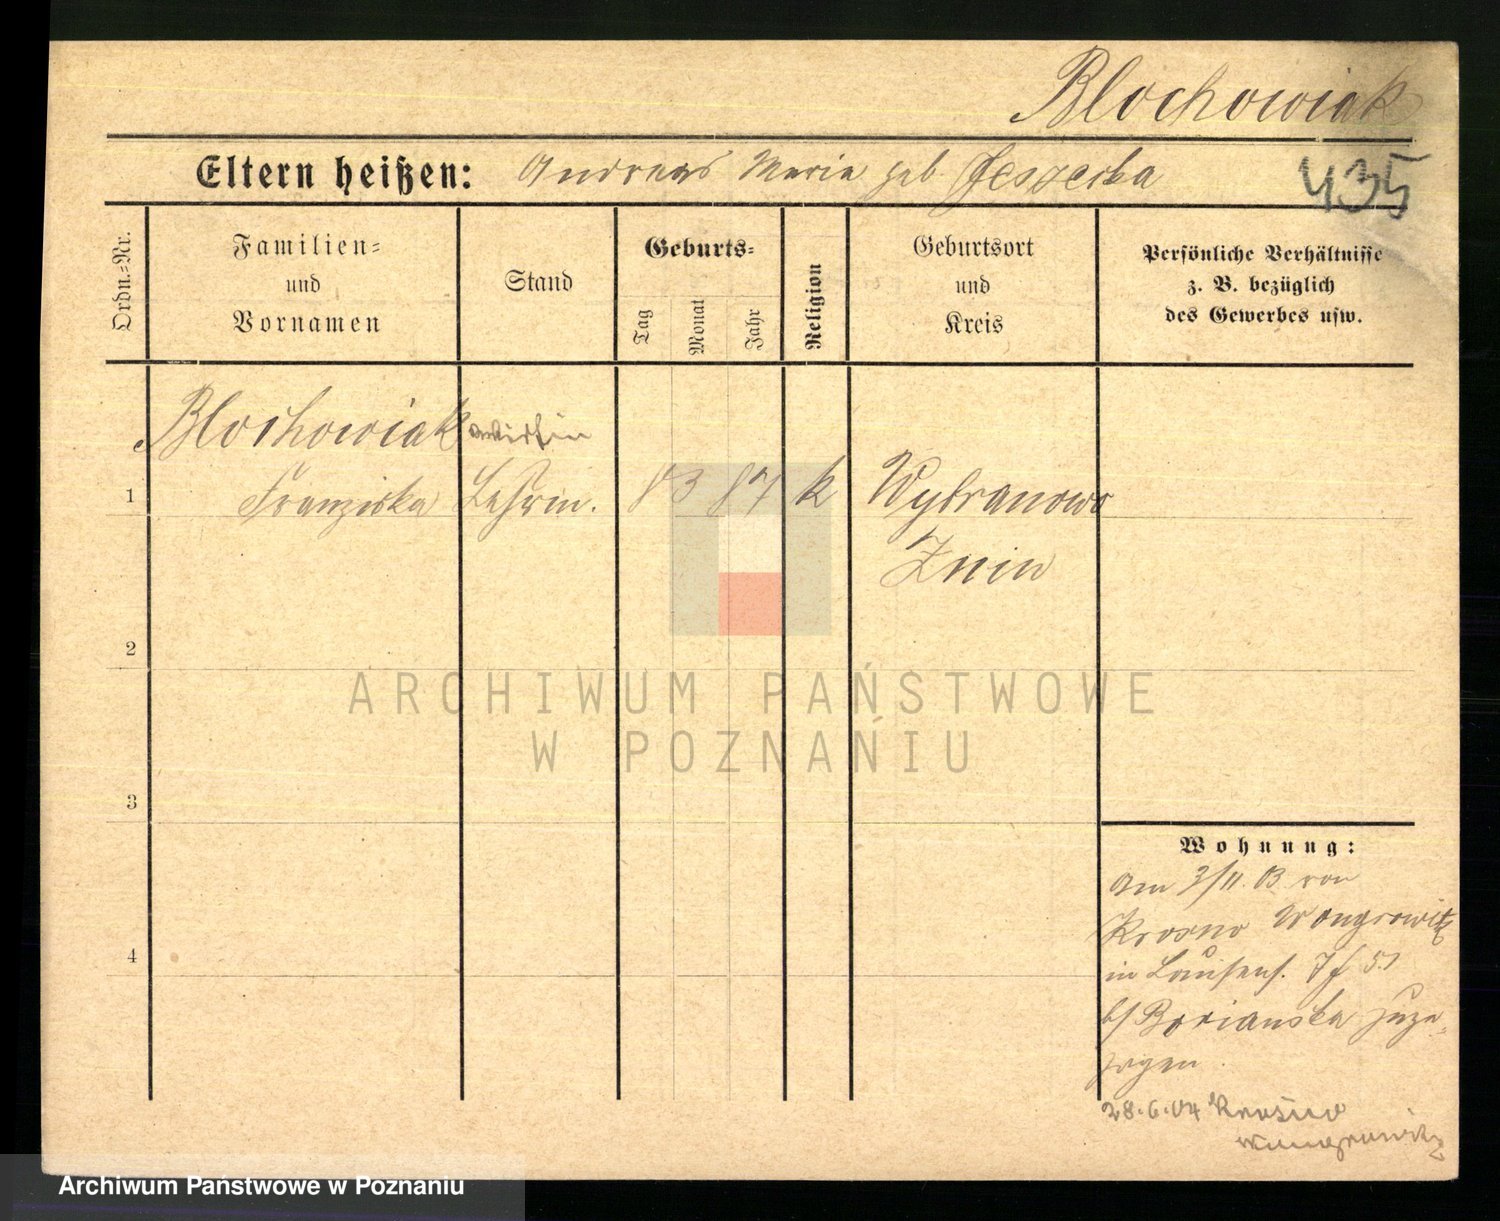 Blochowiak
Eltern heißen: Andreas Maria geb.
435
Ordn.-Nr.
Familien-
und
Vornamen
Stand
Geburts-
Tag
Monat
Jahr
Religion
Geburtsort
und
Kreis
Persönliche Verhältnisse
z. B. bezüglich
des Gewerbes usw.
Blochowiak
1 Franziska 8 3 87 k Wybranowo
Znin
2
3
4
Wohnung:
Am 3/11. 03 von
Krosno Wongrowitz
in 
b/ Borianska zuge-
zogen
28.6.04 Krosno
Wongrowitz
ARCHIWUM PAŃSTWOWE
W POZNANIU
Archiwum Państwowe w Poznaniu